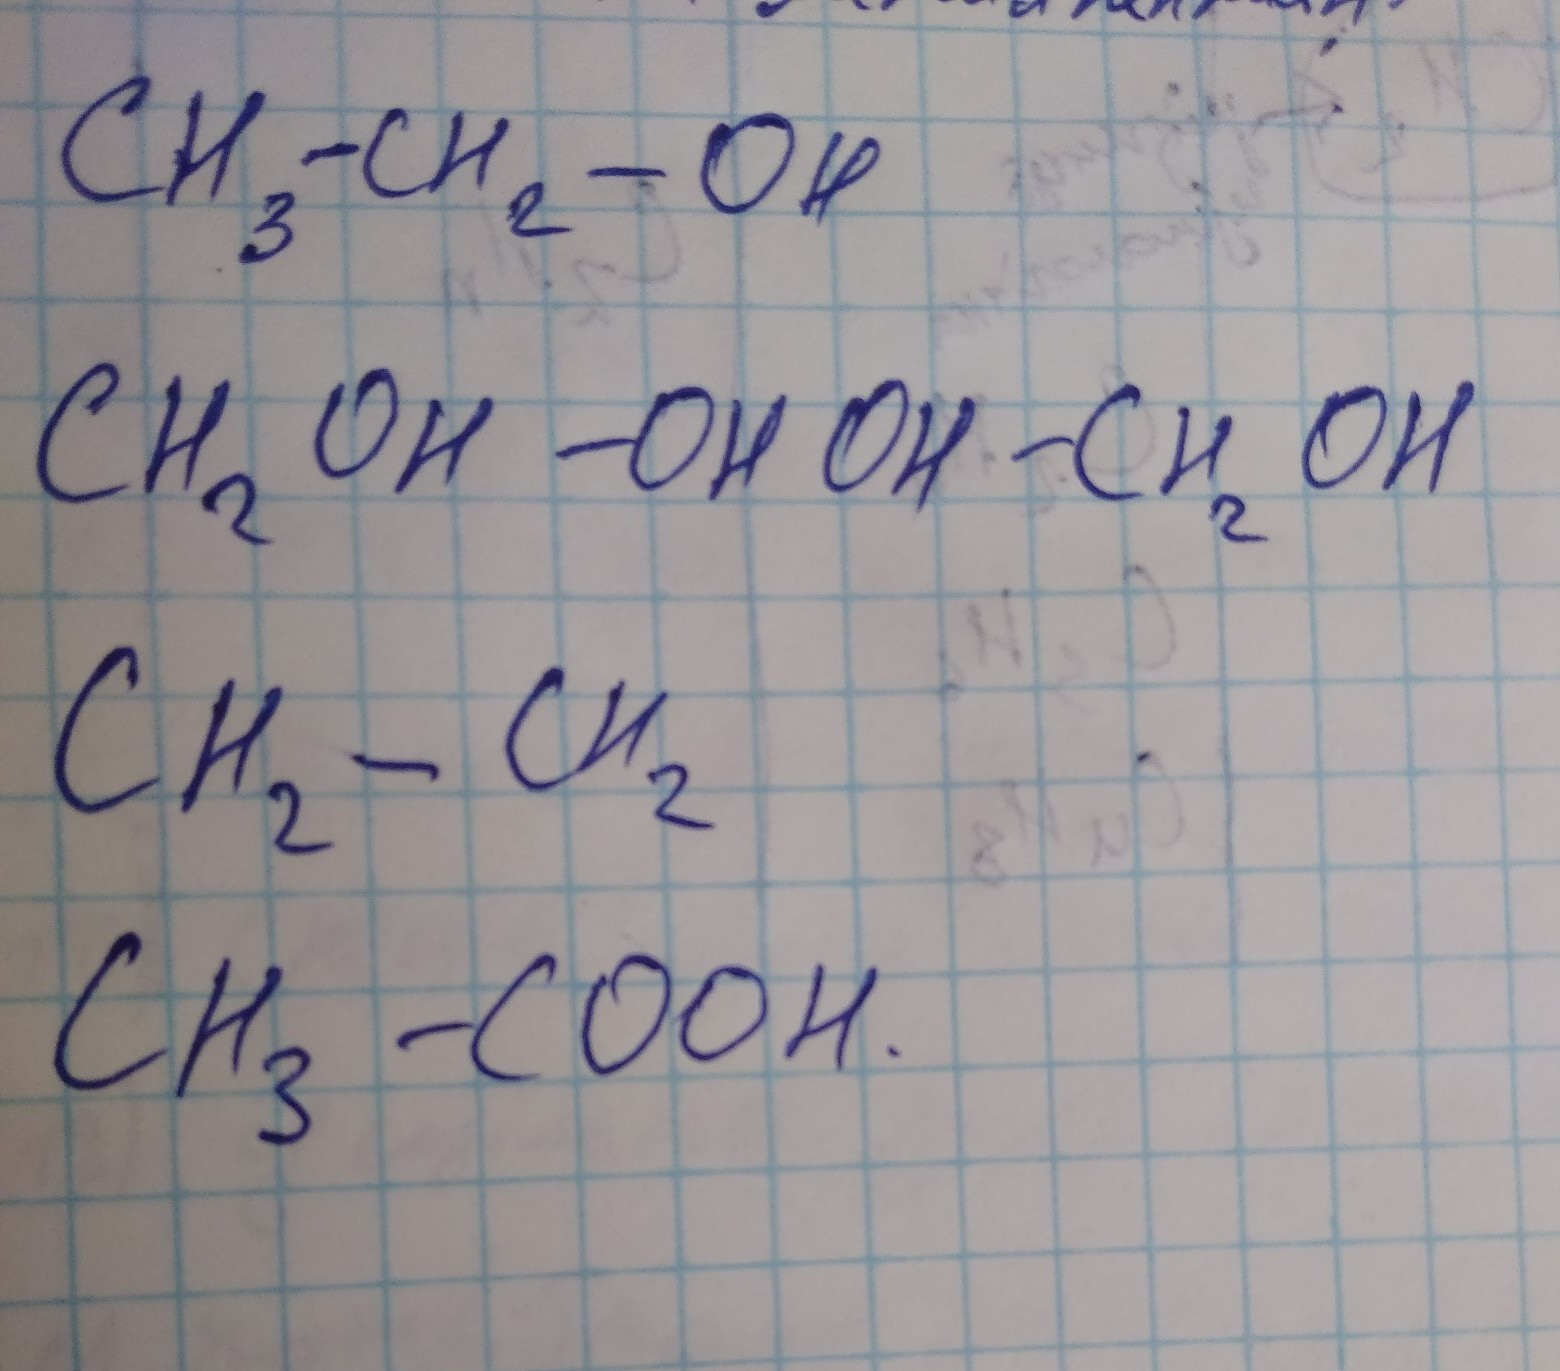 CH₃-CH₂-OH
CH₂OH-OHOH-CH₂OH
CH₂-CH₂
CH₃-COOH.